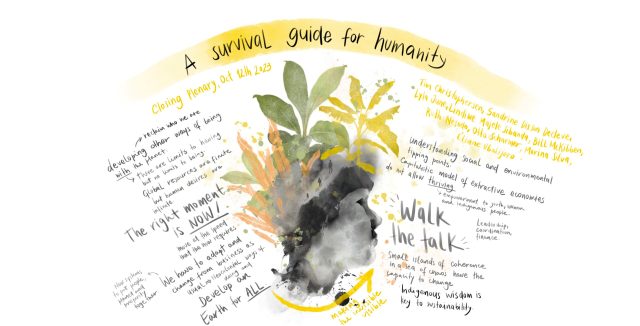 A survival guide for humanity
Closing Plenary, Oct 12th 2023
Tim Christophersen, Sandrine Dixson Declève,
Lyla June, Lindiwe Majele Sibanda, Bill McKibben,
Otto Scharmer, Marina Silva,
reclaim who we are
developing other ways of being
with the planet
There are limits to having
but no limits to being
Global resources are finite
but human desires are
infinite
The right moment
is NOW!
move at the speed
that the now requires
We have to adapt and
change from business as
usual, to
ways of
doing and
Develop an
Earth for ALL
to put people,
planet and
prosperity
together
making
the invisible
visible
Understanding social and environmental
"tipping points"
Capitalistic model of extractive economies
do not allow thriving
empowerment to youth, women
and indigenous people
Walk
the talk
Leadership
coordination
finance
Small islands of coherence
in a sea of chaos have the
capacity to change
Indigenous wisdom is
key to sustainability